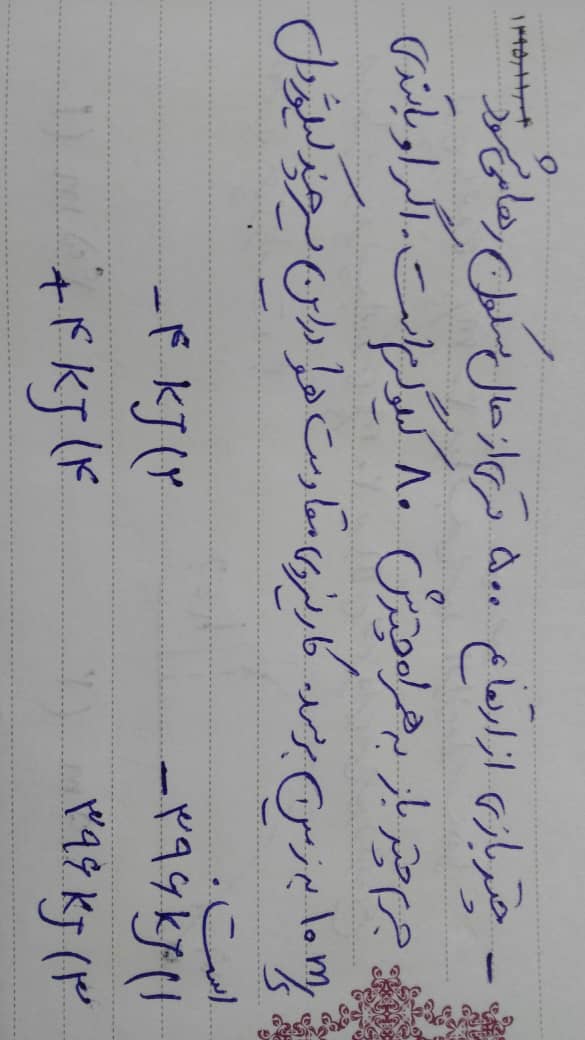 ۱۳۹۵/۱۱/۰۴
- چتربازی از ارتفاع ۵۰۰ متری از حال سکون رها می شود
جرم چتر باز به همراه چترش ۸۰ کیلوگرم است. اگر او با تندی
۱۰ m/s به زمین برسد. کار نیروی مقاومت هوا در این مسیر چند کیلوژول
است.
۱) -۳۹۶ kJ ۲) -۴ kJ
۳) ۳۹۶ kJ ۴) +۴ kJ